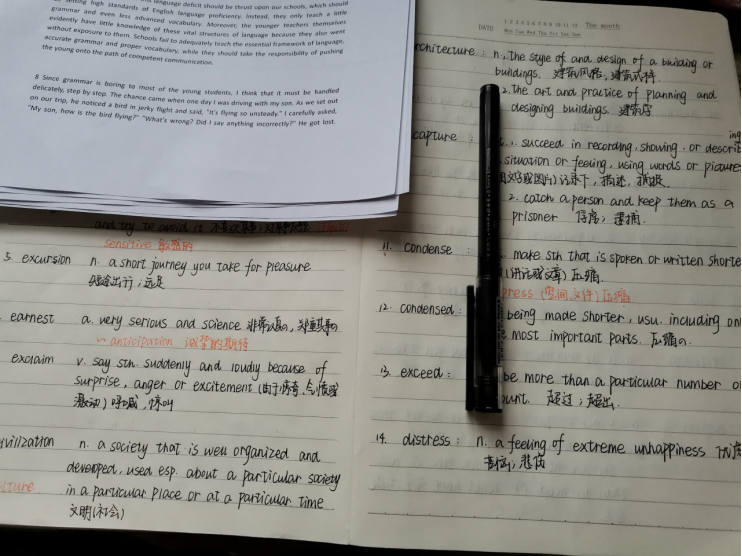 language deficit should be thrust upon our schools, which should
setting high standards of English language proficiency. Instead, they only teach a little
grammar and even less advanced vocabulary. Moreover, the younger teachers themselves
evidently have little knowledge of these vital structures of language because they also went
without exposure to them. Schools fail to adequately teach the essential framework of language,
accurate grammar and proper vocabulary, while they should take the responsibility of pushing
the young onto the path of competent communication.
8 Since grammar is boring to most of the young students, I think that it must be handled
delicately, step by step. The chance came when one day I was driving with my son. As we set out
on our trip, he noticed a bird in jerky flight and said, "It's flying so unsteady." I carefully asked,
"My son, how is the bird flying?" "What's wrong? Did I say anything incorrectly?" He got lost.
and try to avoid it
sensitive 敏感的
5. excursion n. a short journey you take for pleasure
短途出行;远足
earnest a. very serious and science 非常认真的,
~ anticipation 诚挚的期待
exclaim v. say sth. suddenly and loudly because of
surprise, anger or excitement (由于惊奇,气愤或
激动) 呼喊,惊叫
ivilization n. a society that is well organized and
developed, used esp. about a particular society
lture in a particular place or at a particular time
文明(社会)
DATE
1 2 3 4 5 6 7 8 9 10 11 12 The month
Mon Tue Wed Thu Fri Sat Sun
rchitecture: n. 1. the style of and design of a building or
buildings. 建筑风格,建筑式样
2. the art and practice of planning and
designing buildings. 建筑学
ing
capture: 1. succeed in recording, showing, or describ
situation or feeling, using words or pictures
用文字或图片)记录下,描述,捕捉
2. catch a person and keep them as a
prisoner 俘虏;逮捕
11. condense make sth that is spoken or written shorte
(讲话或文章) 压缩
press (空间,文件) 压缩
12. condensed: being made shorter, usu. including on
most important parts. 压缩的
13. exceed: be more than a particular number o
ount. 超过;超出.
14. distress: n. a feeling of extreme unhappiness
苦恼;悲伤